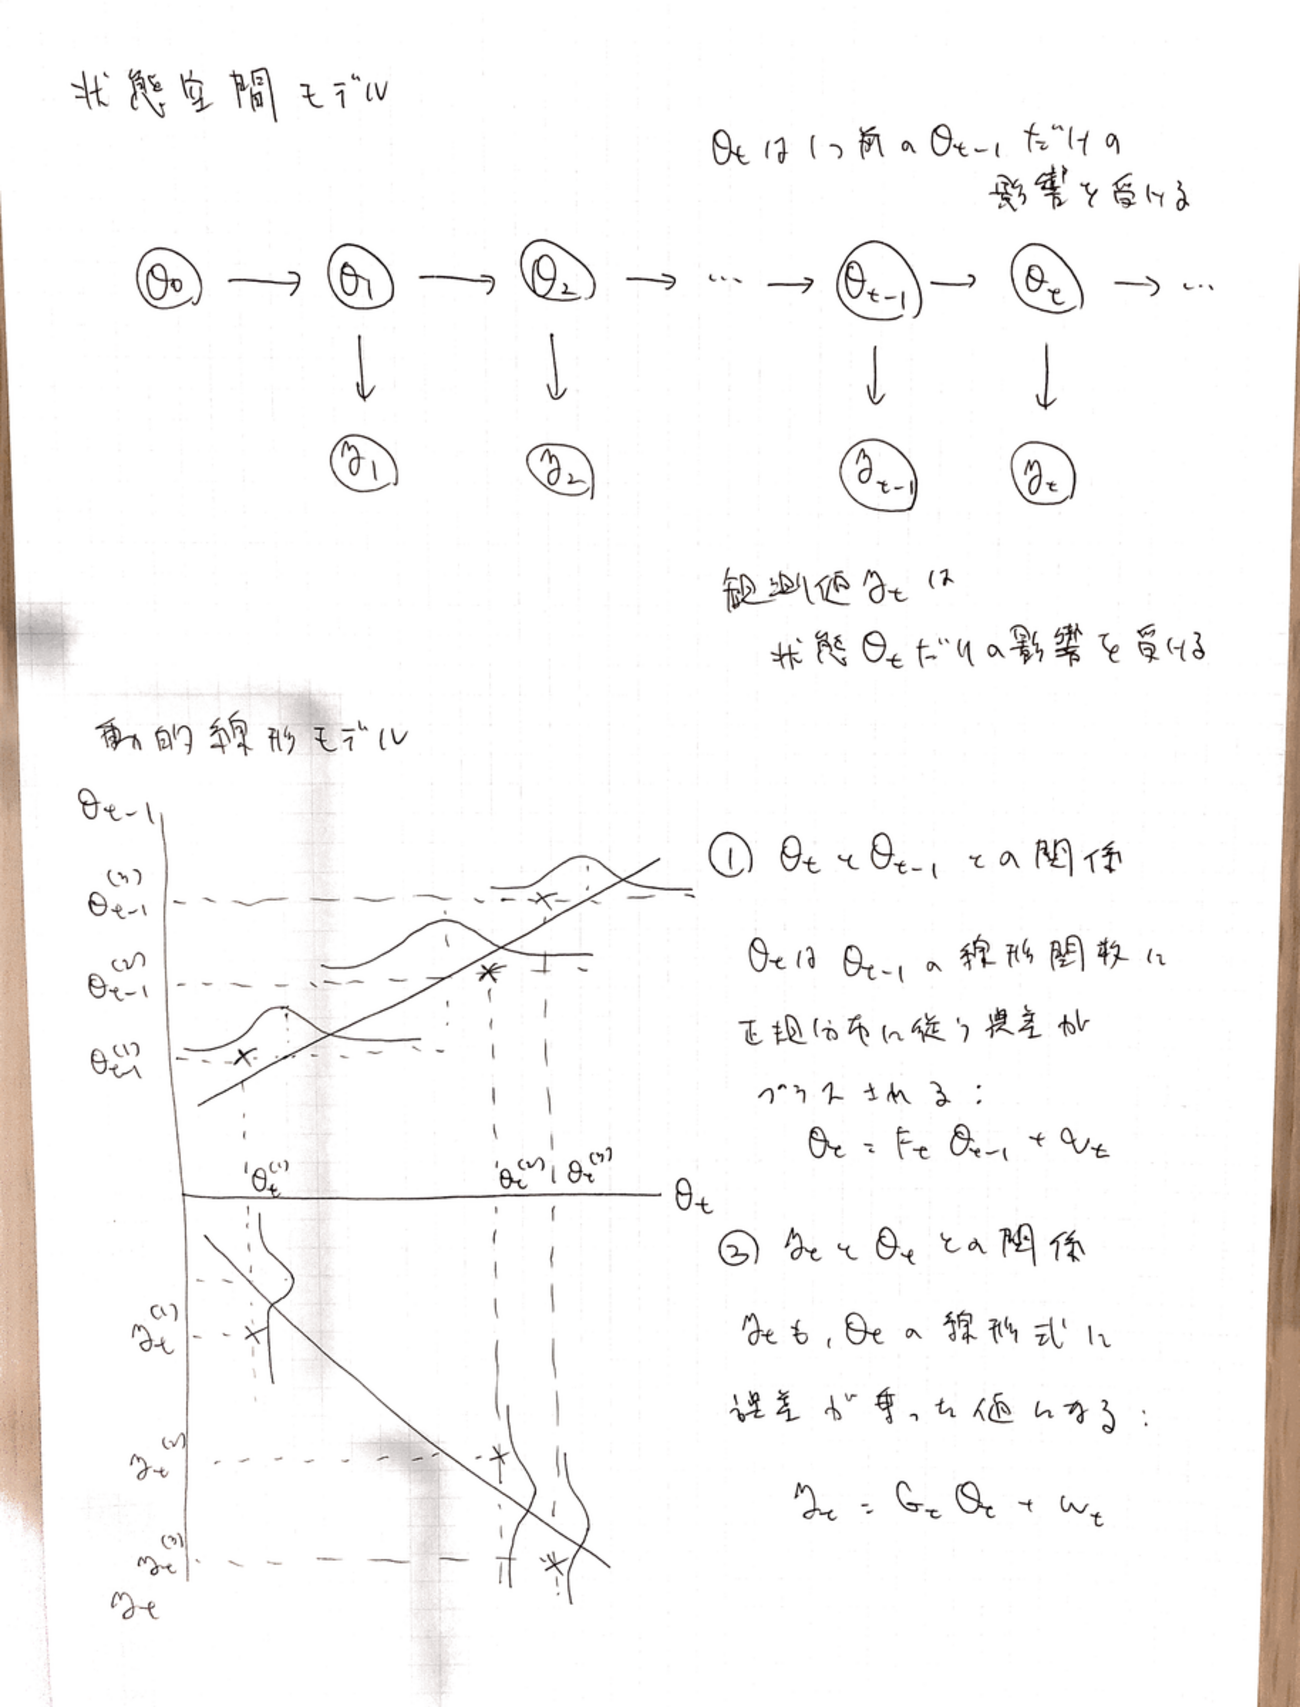 状態空間モデル
θt は1つ前の θt-1 だけの
影響を受ける
θ0 → θ1 → θ2 → … → θt-1 → θt → …
↓ ↓ ↓ ↓
y1 y2 yt-1 yt
観測値 yt は
状態 θt だけの影響を受ける
動的線形モデル
θt-1
θt-1^(3)
θt-1^(2)
θt-1^(1)
θt^(1) θt^(2) θt^(3)
θt
yt^(1)
yt^(2)
yt^(3)
yt
① θt と θt-1 との関係
θt は θt-1 の線形関数に
正規分布に従う誤差が
プラスされる:
θt = Ft θt-1 + vt
② yt と θt との関係
yt も, θt の線形式に
誤差が乗った値になる:
yt = Gt θt + wt